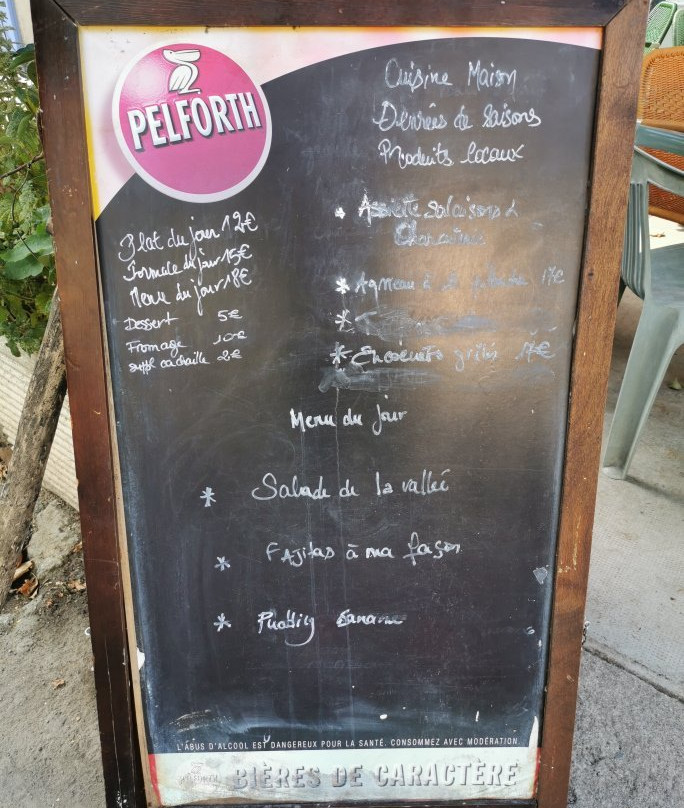 PELFORTH
Cuisine Maison
Denrées de saisons
Produits locaux
Plat du jour 12€
Formule du jour 15€
Menu du jour 18€
Dessert 5€
Fromage 10€
suppl cachaille 2€
* Assiette salaisons &
* Agneau à 17€
* Encornets grillés 17€
Menu du jour
* Salade de la vallée
* FAjitas à ma façon
* Pudding banane
L'ABUS D'ALCOOL EST DANGEREUX POUR LA SANTÉ. CONSOMMEZ AVEC MODÉRATION.
PELFORTH BIÈRES DE CARACTÈRE